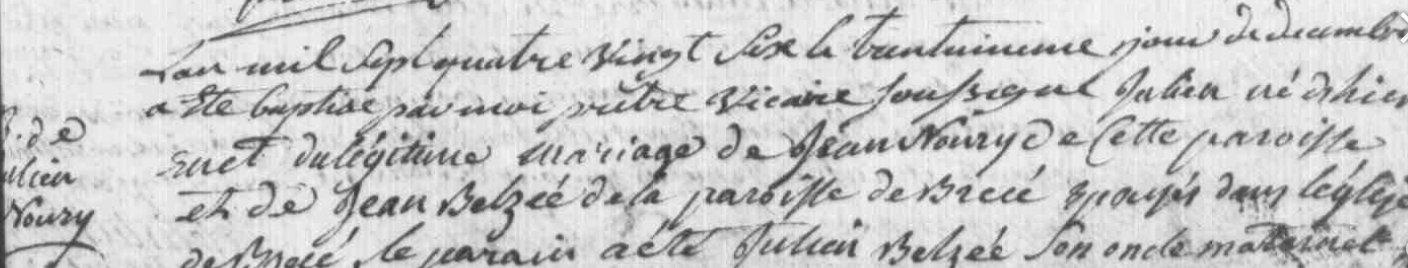 Lan mil Sept quatre Vingt Six le trentuineme jour de decembre
a Ete baptise par moi prêtre Vicaire soussigné Julien né dhier
Julien
Noury
en et du légitime mariage de Jean Noury de Cette paroisse
et de Jean Belzéé de la paroisse de Brecé Epousés dans léglise
de Brecé le parain a été Julien Belzée Son oncle maternel